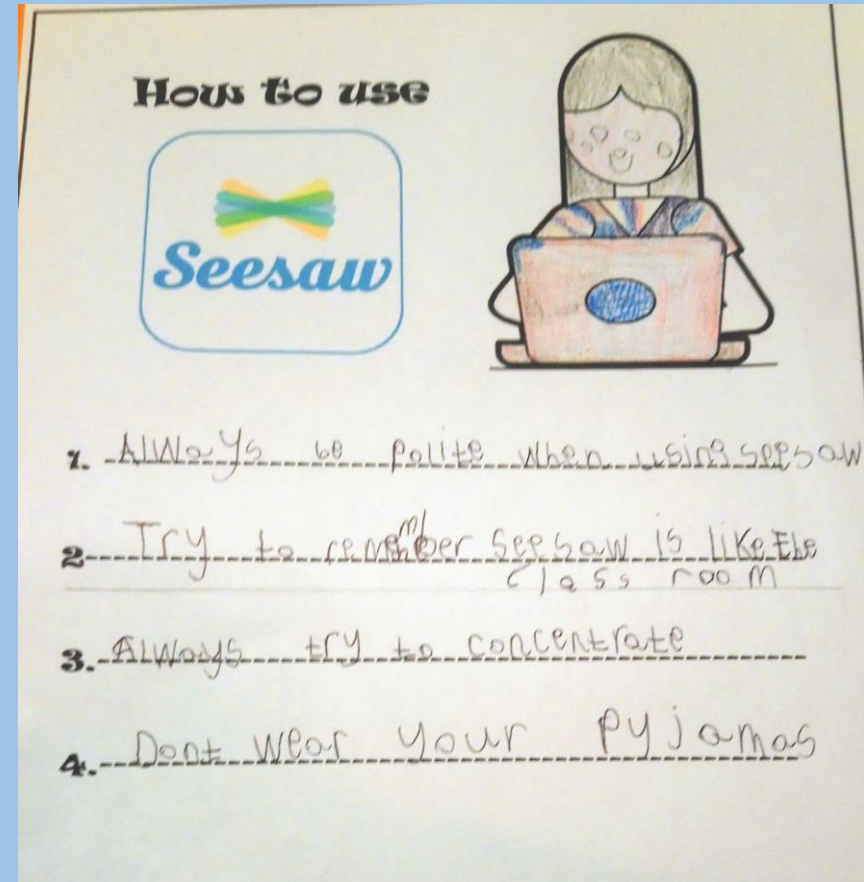 How to use
Seesaw
1. Always be polite when using seesaw
2 Try to remember seesaw is like the
class room
3. Always try to concentrate
4. Dont wear your pyjamas